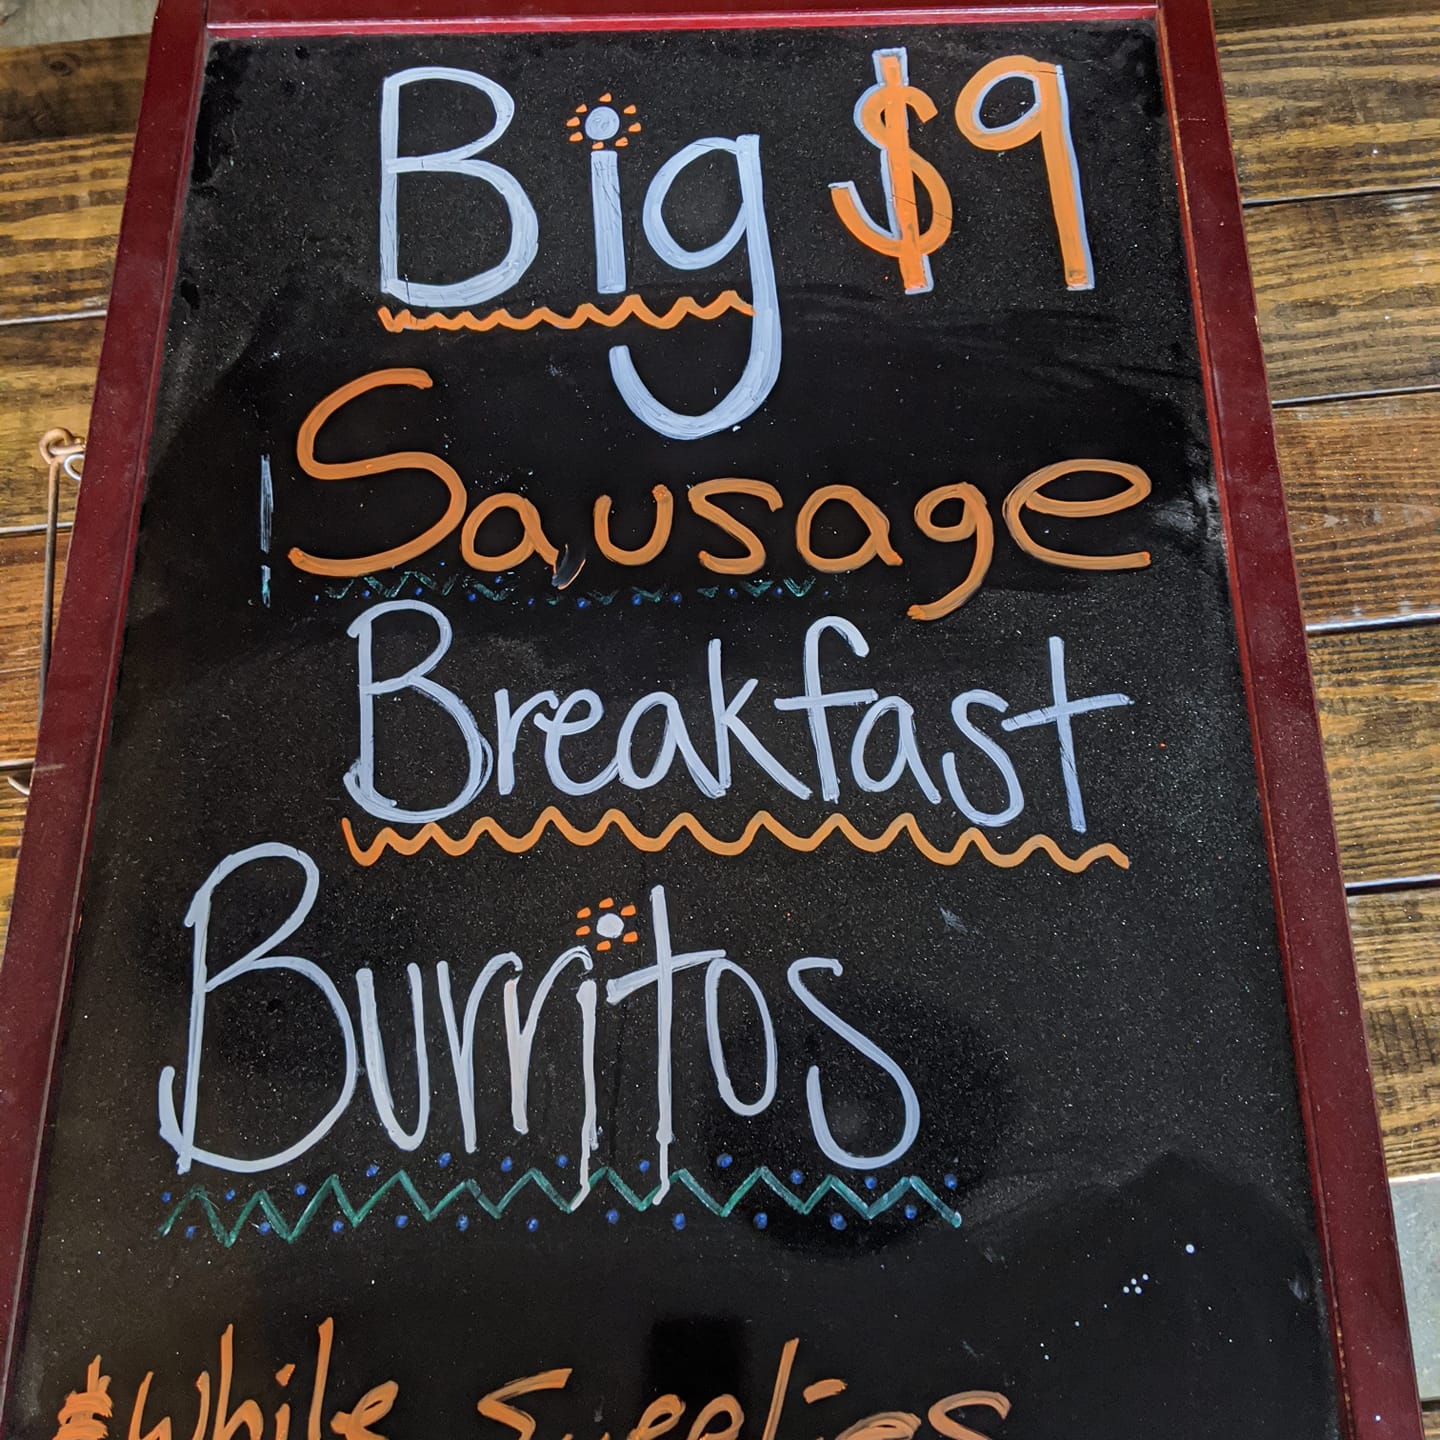 Big $9
Sausage
Breakfast
Burritos
*While